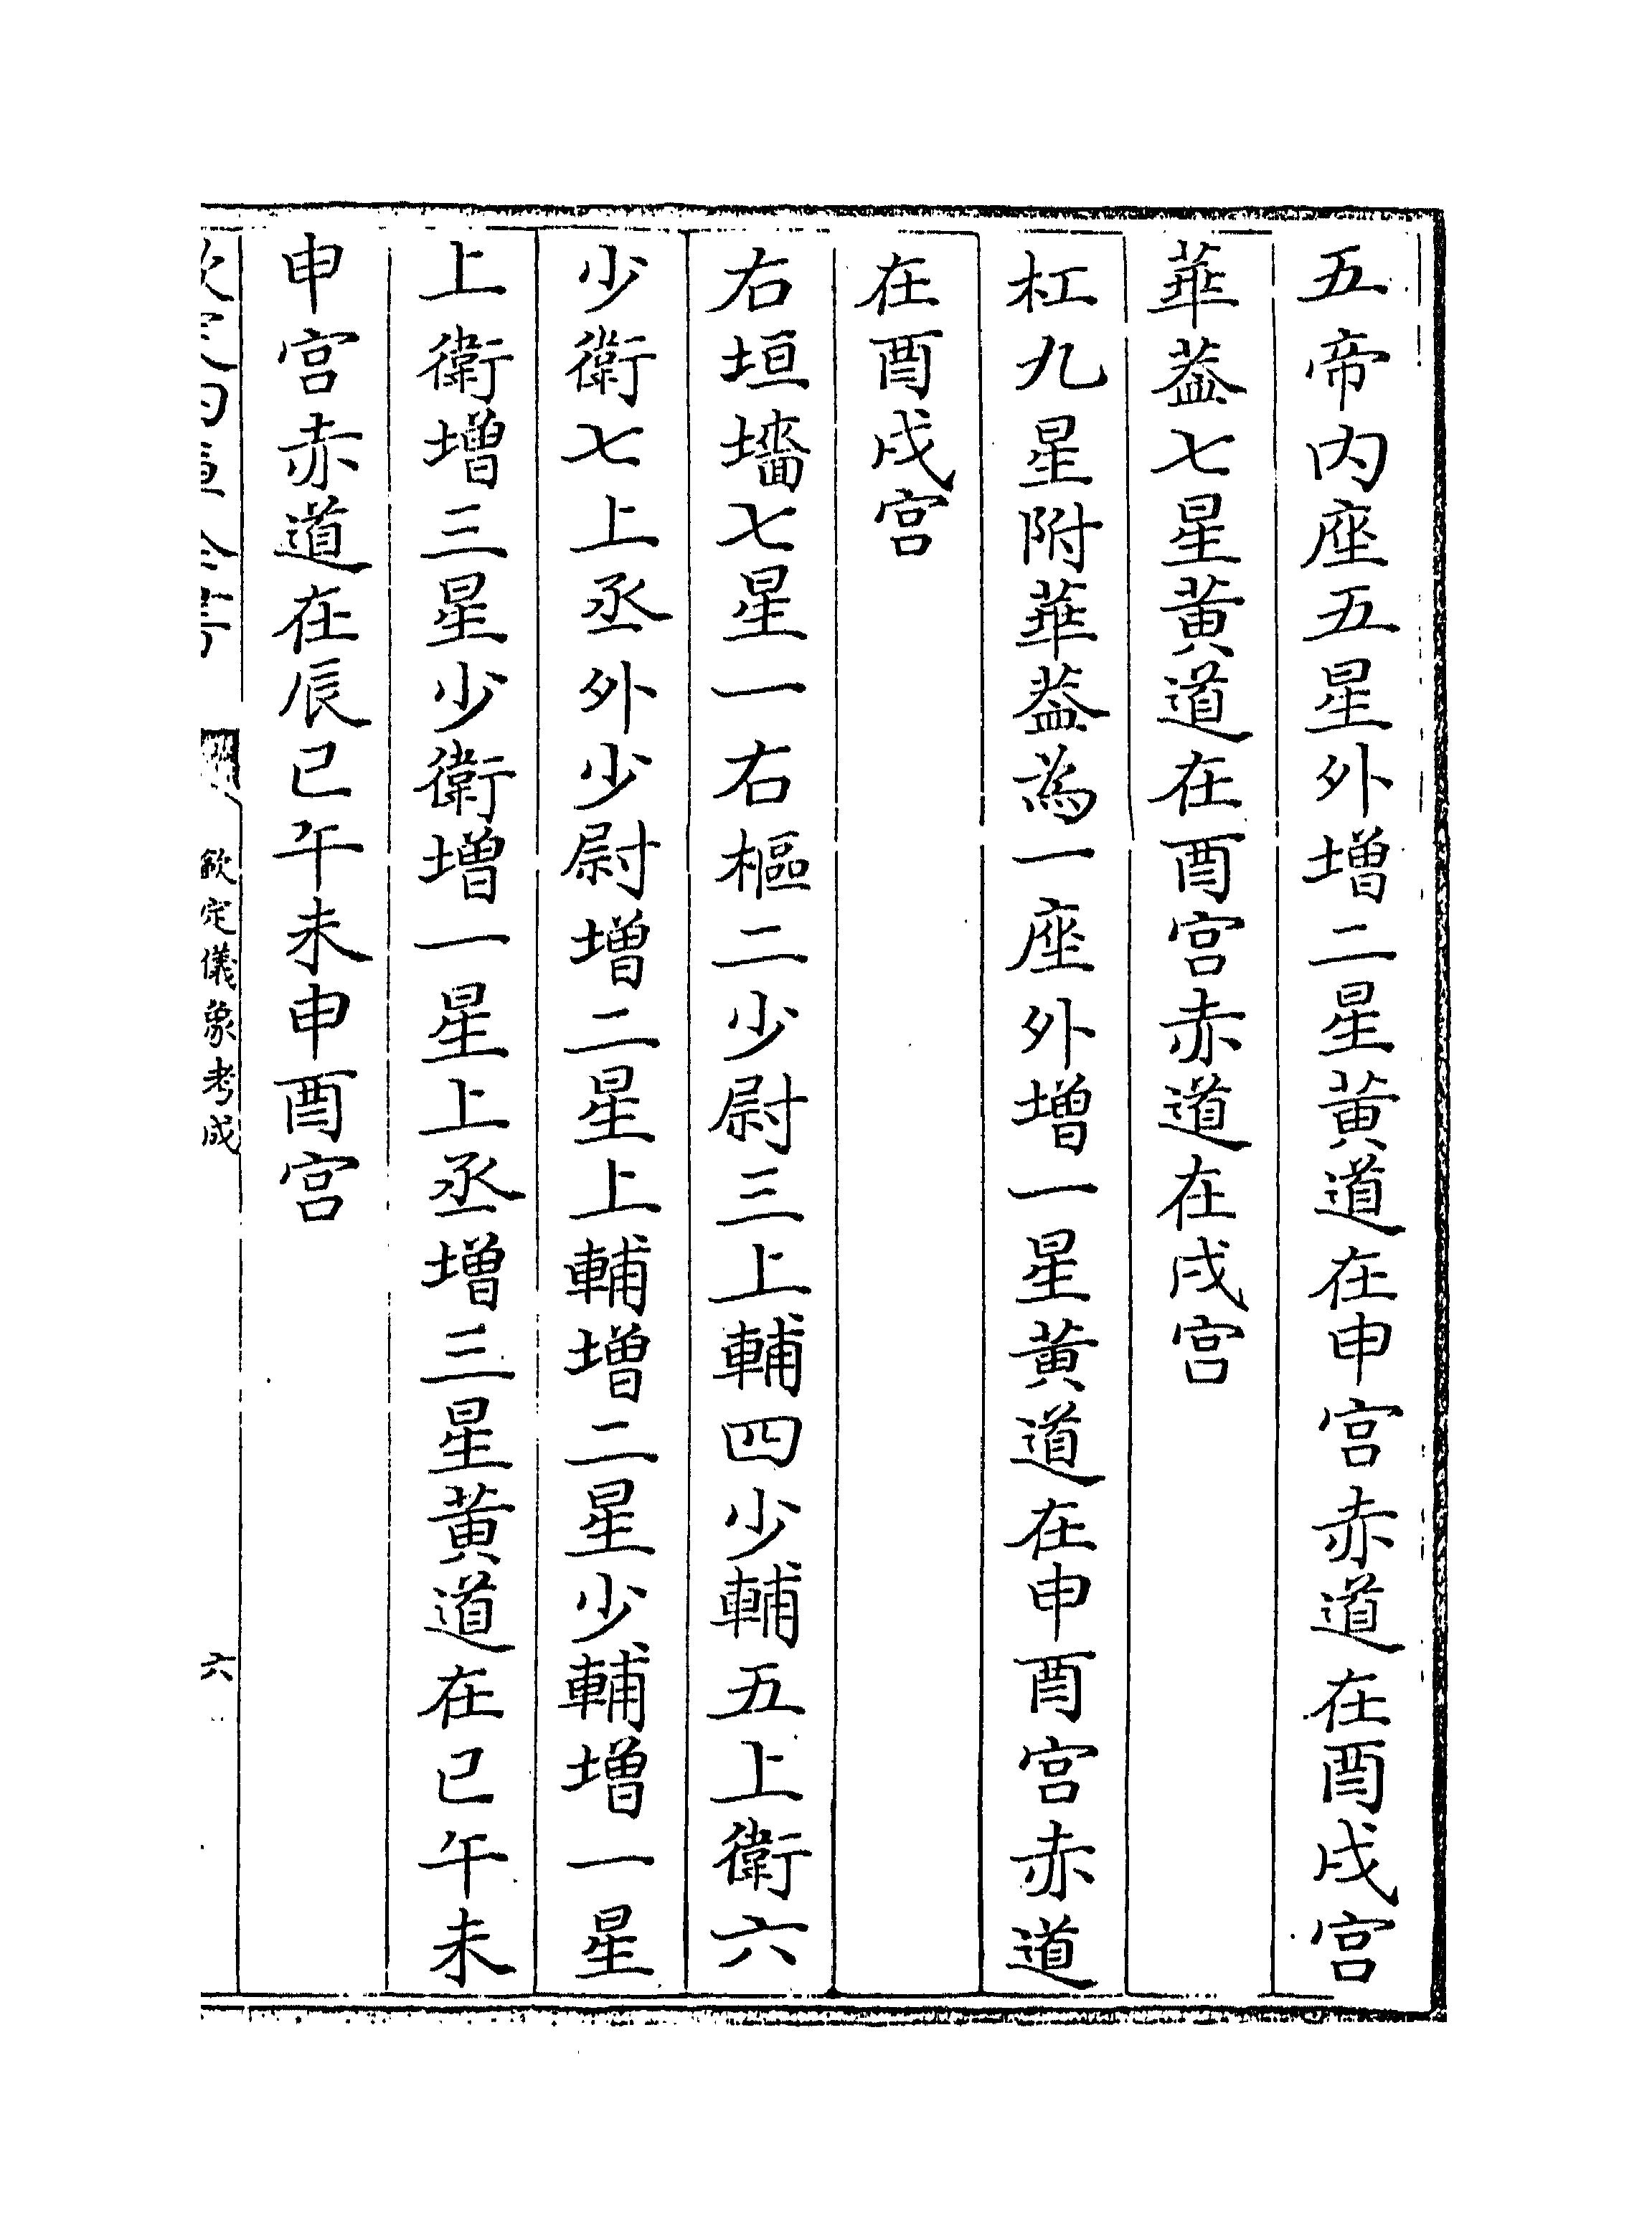 五帝内座五星外增二星黄道在申宫赤道在酉戌宫
華葢七星黄道在酉宫赤道在戌宫
杠九星附華葢為一座外增一星黄道在申酉宫赤道
在酉戌宫
右垣墻七星一右樞二少尉三上輔四少輔五上衛六
少衛七上丞外少尉增二星上輔增二星少輔增一星
上衛增三星少衛增一星上丞增三星黄道在巳午未
申宫赤道在辰巳午未申酉宫
欽定儀象考成
六